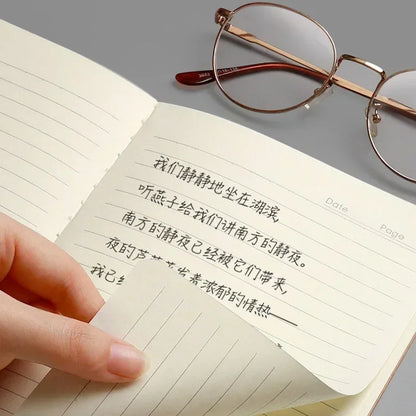 Date
Page
我们静静地坐在湖滨
听燕子给我们讲南方的静夜。
南方的静夜已经被它们带来，
夜的芦发着浓郁的情热——
我已